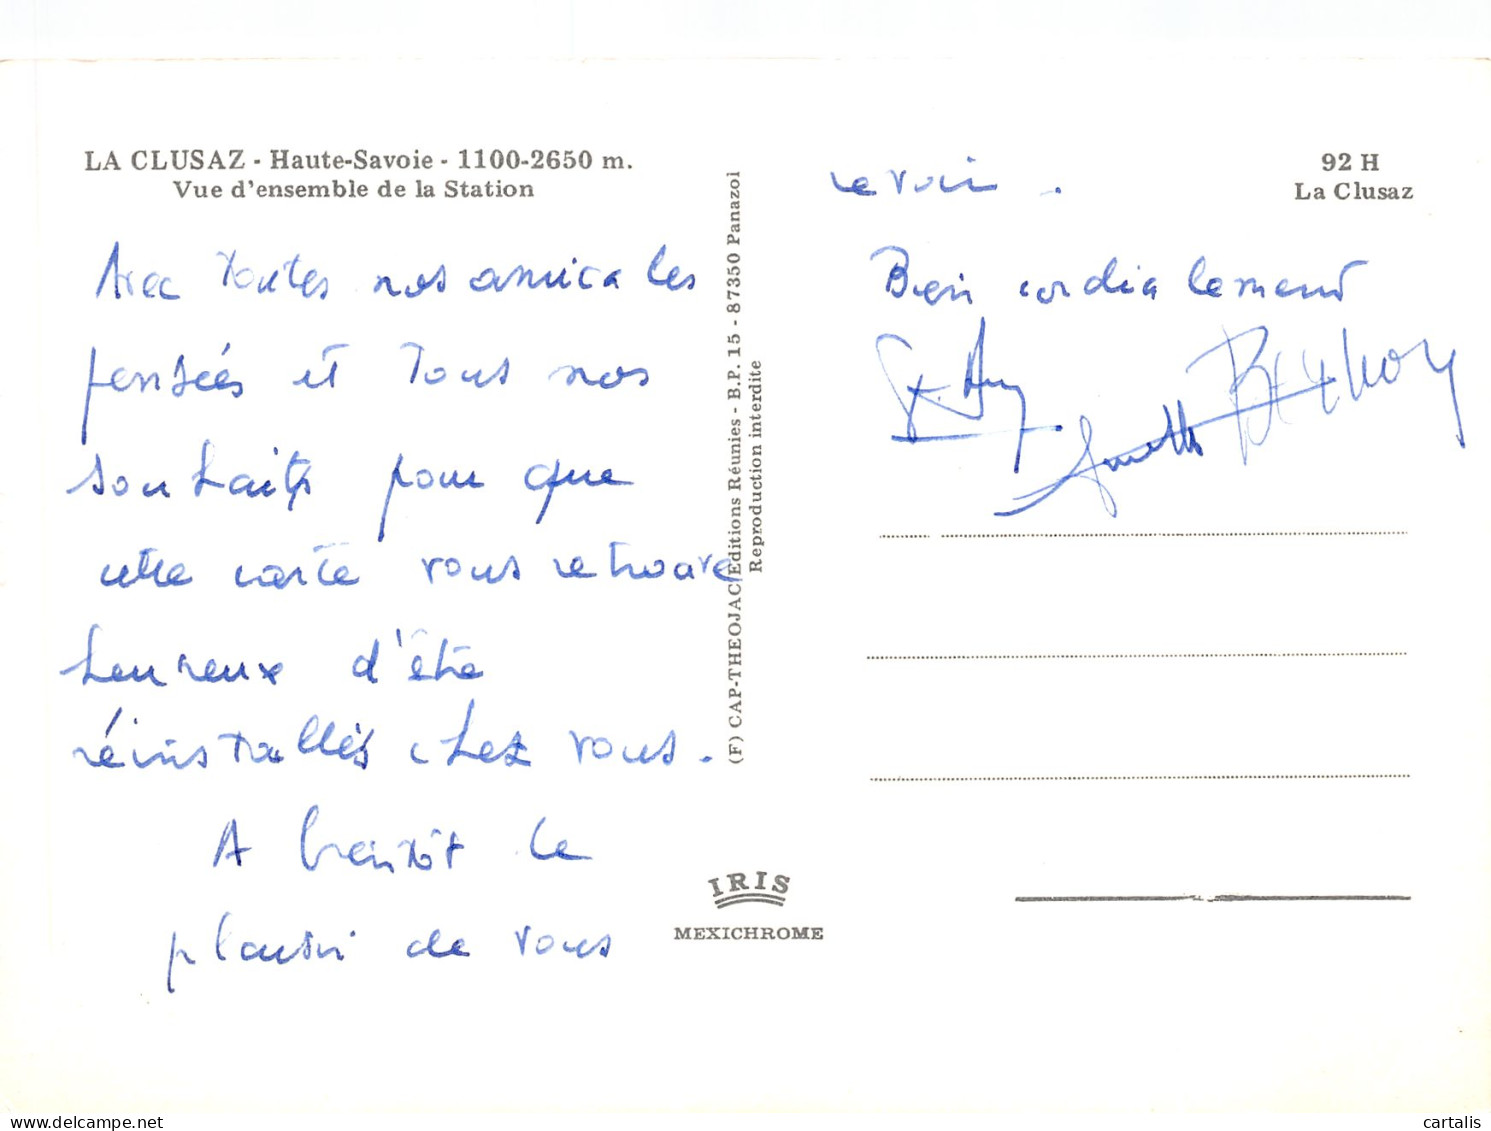 LA CLUSAZ - Haute-Savoie - 1100-2650 m.
Vue d'ensemble de la Station
Avec toutes nos amicales
pensées et tous nos
souhaits pour que
cette carte vous retrouve
heureux d'être
réinstallés chez vous.
A bientôt le
plaisir de vous
(F) CAP-THEOJAC Editions Réunies - B.P. 15 - 87350 Panazol
Reproduction interdite
IRIS
MEXICHROME
92 H
La Clusaz
revoir.
Bien cordialement
cartalis